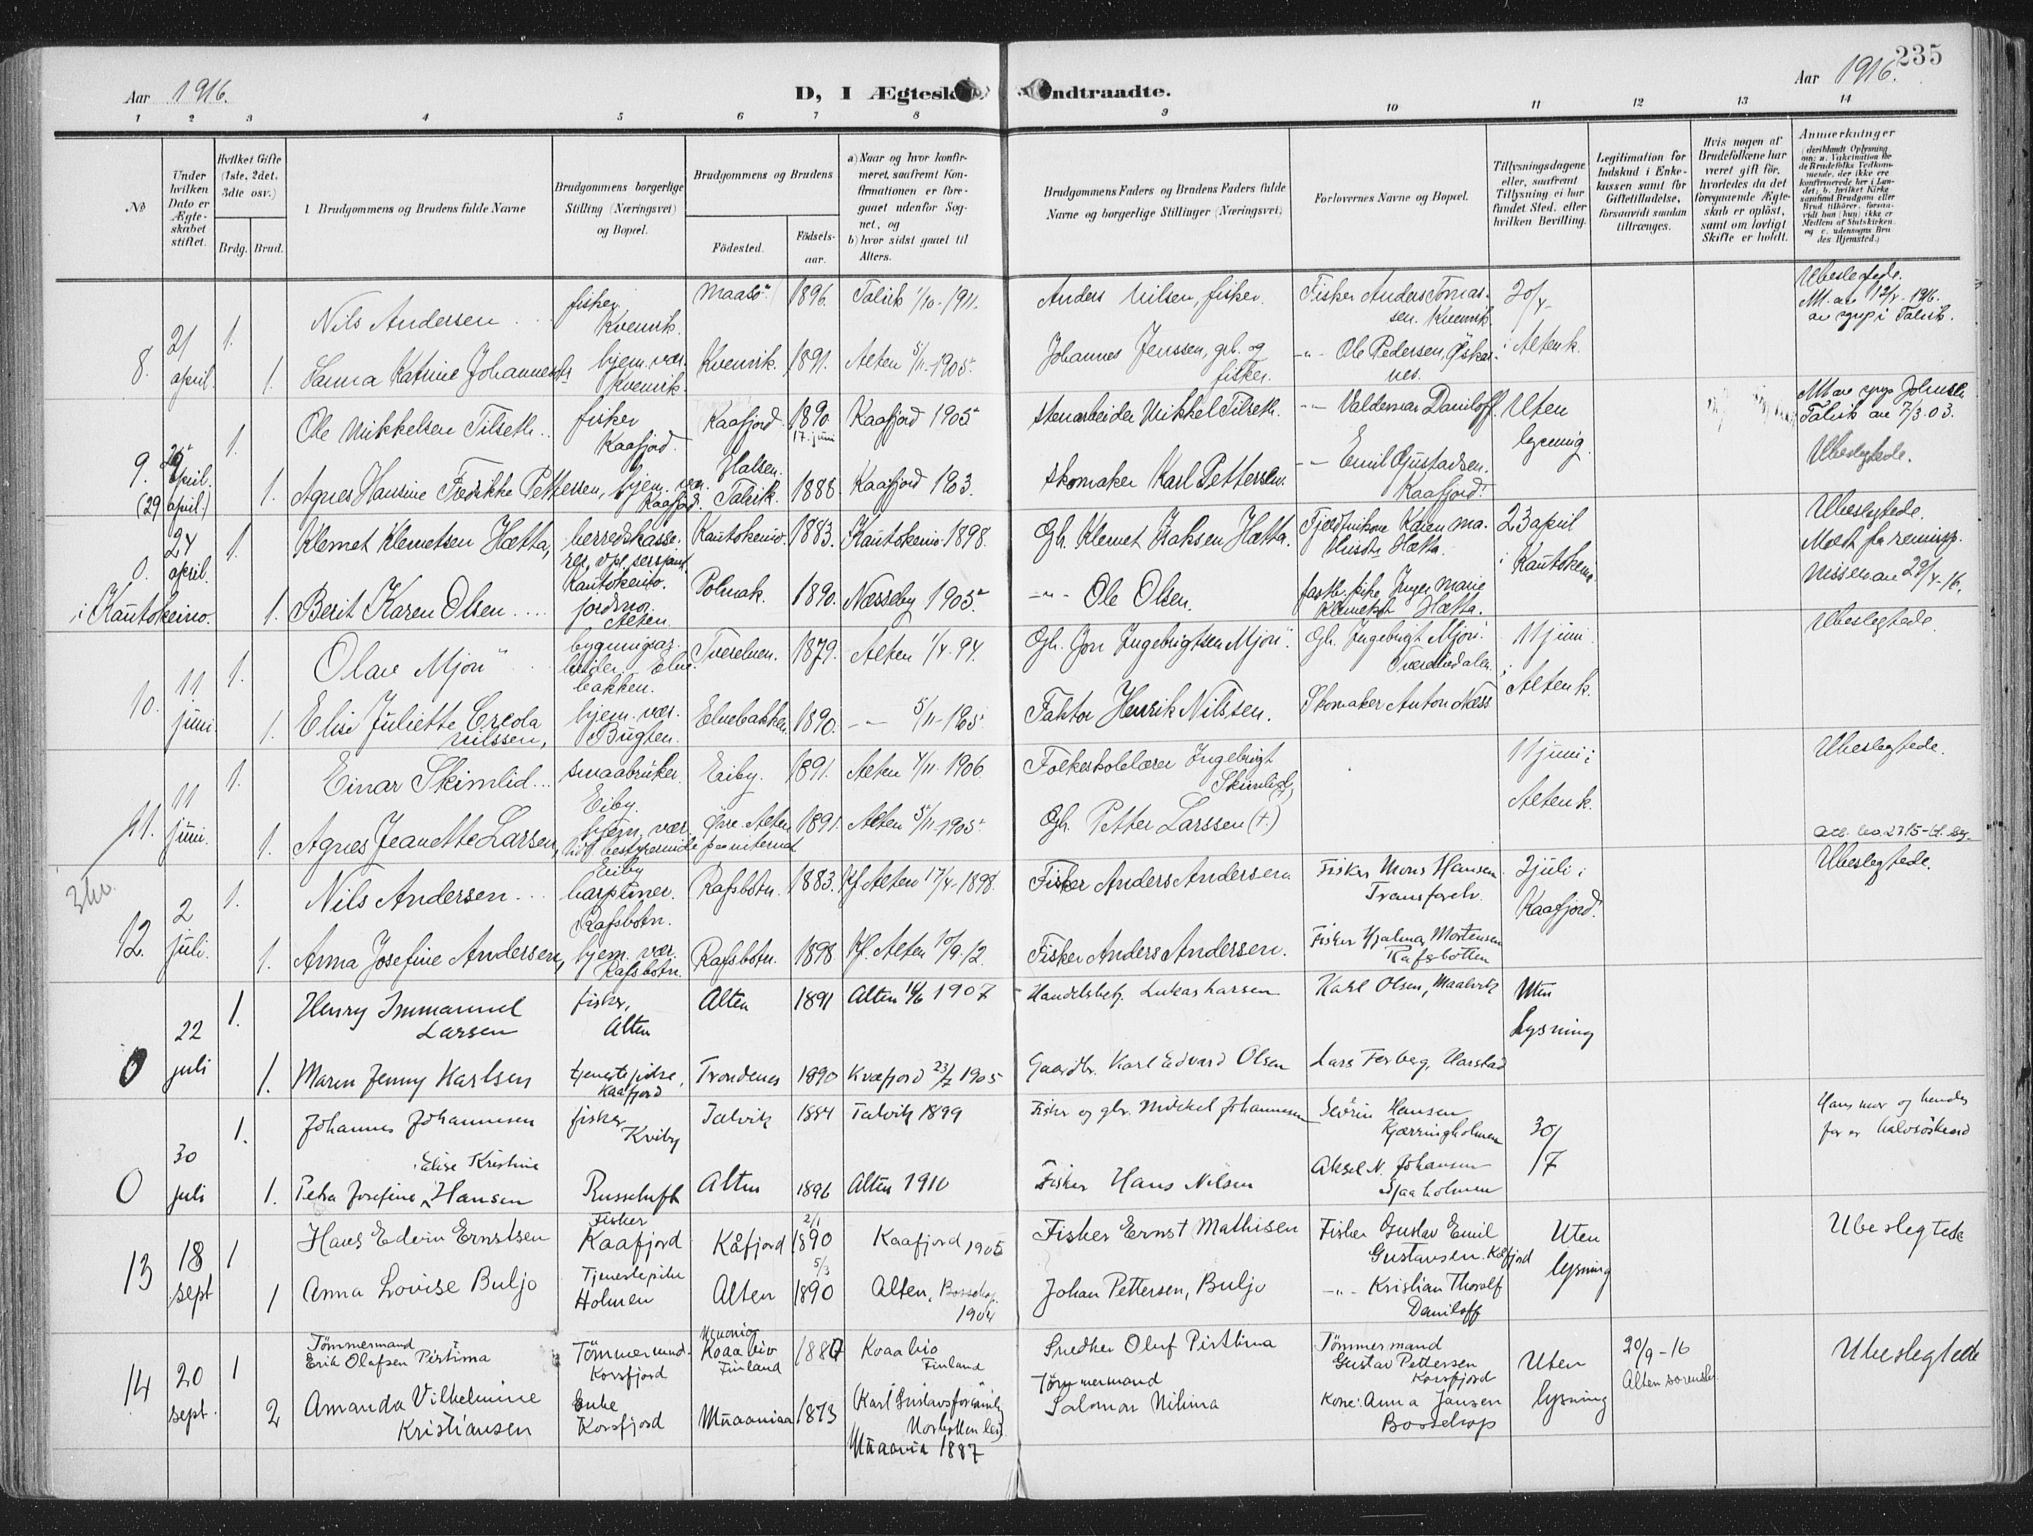 235
Aar 1916.
D, I Ægtesk ndtraadte.
Aar 1916.
1 2 3 4 5 6 7 8 9 10 11 12 13 14
No
Under hvilken Dato er Ægteskabet stiftet.
Hvilket Gifte (1ste, 2det, 3die osv.)
Brdg. Brud.
Brudgommens og Brudens fulde Navne
Brudgommens borgerlige Stilling (Næringsvei) og Bopæl.
Brudgommens og Brudens
Födested.
Födselsaar.
a) Naar og hvor konfirmeret, saafremt Konfirmationen er foregaaet udenfor Sognet, og
b) hvor sidst gaaet til Alters.
Brudgommens Faders og Brudens Faders fulde Navne og borgerlige Stillinger (Næringsvei)
Forlovernes Navne og Bopæl.
Tillysningsdagene eller, saafremt Tillysning ei har fundet Sted, efter hvilken Bevilling.
Legitimation for Indskud i Enkekassen samt for Giftetilladelse, forsaavidt saadan tiltrænges.
Hvis nogen af Brudefolkene har været gift før, hvorledes da det foregaaende Ægteskab er oplöst, samt om lovligt Skifte er holdt.
Anmærkninger
8. 21 april. 1. Nils Andersen fisker Kvenvik. Maasö 1896. Talvik 1/10-1911. Anders Nilsen, fisker. Fisker Anders Tomassen. Kvenvik. 20/4- Ubeslegtede.
1. Hanna Katrine Johannesdtr hjem. vær. Kvenvik. Kvenvik. 1891. Alten 5/11-1905. Johannes Jenssen, grb. og fisker. -"- Ole Pedersen, i Alten k.
9. april. (29 april.) 1. Ole Mikkelsen Tilseth fisker Kaafjord. Kaafjord 1890 17. juni Kaafjord 1905 Stenarbeider Mikkel Tilseth. -"- Valdemar Daniloff Uten lysning.
1. Agnes Hansine Fredrikke Pettersen, hjem. vær. Kaafjord. Halsen. Talvik. 1888 Kaafjord 1903. Skomaker Karl Pettersen. -"- Emil Gustadsen. Kaafjord. Ubeslegtede.
0. i Kautokeino. 24 april. 1. Klemet Klemetsen Hætta, herredskasserer, sersjant Kautokeino. Kautokeino. 1883. Kautokeino 1898. Gb. Klemet Isaksen Hætta. Hætta. 23 april i Kautokeino Ubeslegtede.
1. Berit Karen Olsen Alten. Polmak. 1890. Næsseby 1905 -"- Ole Olsen. Inger Marie Klemetsdtr Hætta.
10. 11 juni. 1. Olav Mjöri Elvebakken. Tverelven. 1879. Alten 1/4-94. Gb. Jon Ingebrigtsen Mjöri. Gb. Ingebrigt Mjöri. 11 juni i Alten k. Ubeslegtede.
1. Elise Juliette Creola Nilssen, hjem. vær. Bugten. Elvebakken. 1890. -"- 5/11-1905 Faktor Henrik Nilssen. Skomaker Anton Næss
11. 11 juni. 1. Einar Skimlid smaabruker. Eiby. Eiby. 1891. Alten 4/11-1906. Folkeskolelærer Ingebrigt Skimlid(+) 11 juni i Alten k. Ubeslegtede.
1. Agnes Jeanette Larsen, hjem. vær. Eiby Övre-Alten 1891. Alten 5/11-1905 Gb. Petter Larssen (+)
12. 2 juli. 1. Nils Andersen harpuner. Rafsbotn. Rafsbotn. 1883. Kf Alten 17/4-1898. Fisker Anders Andersen Fisker Mons Hansen Transfarelv. 2 juli i Kaafjord. Ubeslegtede.
1. Anna Josefine Andersen, hjem. vær. Rafsbotn. Rafsbotn. 1898 Kf. Alten 15/9-12. Fisker Anders Andersen. Fisker Hjalmar Mortensen Rafsbotten
0 22 juli 1. Henry Immanuel Larsen fisker, Alten Alten 1891 Alten 16/6 1907 Handelsbetj. Lukas Larsen Karl Olsen, Maalvik Uten lysning
1. Maren Jenny Karlsen tjenestepike, Kaafjord Trondenes 1890 Kvæfjord 23/7 1905 Gaardbr. Karl Edvard Olsen Lars Forberg, Harstad
0 30 juli 1. Johannes Johannesen fisker Kviby Talvik 1884 Talvik 1899 Fisker og gbr. Mikkel Johannesen Severin Hansen, Kjærringholmen 30/7 Hans mor og hendes far er halvsöskend
1. Petra Josefine Elise Kristine Hansen Russeluft Alten 1896 Alten 1910 Fisker Hans Nilsen Aksel N. Johansen Sjaaholmen
13 18 sept 1 Hans Edvin Ernstsen Fisker Kaafjord Kåfjord 2/1 1890 Kaafjord 1905 Fisker Ernst Mathisen Fisker Gustav Emil Gustavsen. Kåfjord Uten lysning Ubeslegtede
1 Anna Lovise Buljo Tjenestepike Holmen Alten 5/3 1890 Alten, Bossekop 1904 Johan Pettersen, Buljo -"- Kristian Thoralf Daniloff
14 20 sept. 1 Tömmermand Erik Olafsen Pirtima Tömmermand. Korsfjord Muonio Koaabio Finland 1880 Kvaabio Finland Snedker Oluf Pirttima Tömmermand Gustav Pettersen Korsfjord Uten lysning 20/9-16 Alten sorenskr. Ubeslegtede
2 Amanda Vilhelmine Kristiansen Enke Korsfjord Muaaniaa 1873 (Karl Gustavs församling Norbotten len) Muaania 1887 Tömmermand Salomon Nilima Kone: Anna Jansen Bossekop